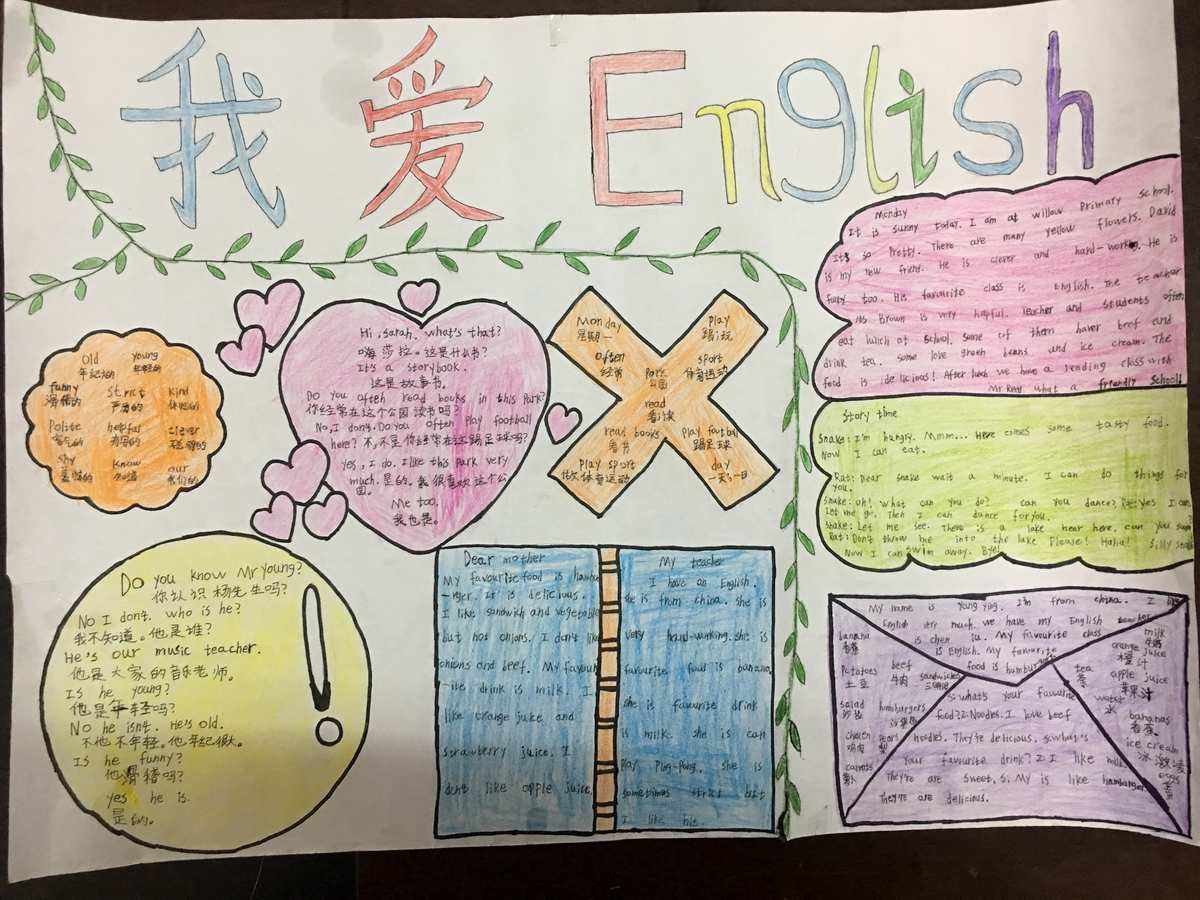 我爱English
Old young
年轻的
funny strict kind
滑稽的 严肃的
Polite helpful clever
客气的
shy know our
知道 我们的
Hi, sarah. what's that?
嗨 莎拉。这是什么书?
It's a storybook.
这是故事书。
Do you often read books in this Park?
你经常在这个公园读书吗?
No, I dong. Do you often Play football
here? 不,不是你经常在这踢足球吗?
yes, I do. I like this Park very
much. 是的。我很喜欢这个公
园。
Me too.
我也是。
Monday play
星期一
often sport
经常 体育运动
Park
公园
read
看读
read books play football
看书 踢足球
play sport day
做体育运动
Monday
It is sunny today. I am at willow Primary school.
It's so Pretty. There are many yellow flowers. David
is my new friend. He is clever and hard-working. He is
funy too. His favourite class is English. The teacher
Ms Brown is very Hepful. Teacher and students often
eat lunch at School. some of them haver beef and
drink tea. some love green beans and ice cream. The
food is idelicious! After lunch we have a reading class with
what a friendly School!
Story time
Snake: I'm hungry. Mmm... Here comes some tasty food.
Now I can eat.
Rat: Dear snake wait a minute. I can do things for
you.
Snake: uh! what can you do? can you dance? Yes I can
Let me go. Then I can dance for you.
Snake: Let me see. There is a lake near here. can you swim
Rat: Don't throw me into the lake Please! Haha! Silly snake
Now I can swim away. Bye!
Do you know Mr Young?
你认识杨先生吗?
No I dont. who is he?
我不知道。他是谁?
He's our music teacher.
他是大家的音乐老师。
Is he young?
他是年轻吗?
No he isnt. He's old.
不他不年轻。他年纪很大。
Is he funny?
他滑稽吗?
yes he is.
是的。
Dear mother
My favourite food is hambu
-nger. It is delicious.
I like sandwich and vegetable
but not onions. I don't like
onions and beef. My favour
-ite drink is milk. I
like orange juice and
strawberry juice. I
dont like apple juice.
My teacher
I have an English.
she is from china. she is
very hard-working. she is
favourite food is banana.
she is favourite drink
is milk. she is can
Play Ping-Pong. she is
sometimes strict but
I like hie.
My name is Yang ying. I'm from china. I like
English very much. we have my English teacher
is chen lu. My favourite class
is English. My favourite
food is
banana
香蕉
Potatoes
土豆
salad
hamburgers
carrots
beef
牛肉
sandwiches
pears
梨
milk
牛奶
orange juice
橙汁
tea
茶
apple juice
苹果汁
water
水
bananas
香蕉
ice cream
冰激凌
eggs
S: what's your favourite
food? Z: Noodles. I love beef
noodles. They're delicious. S: what's
your favourite drink? Z: I like milk.
They're are sweet. S: My is like hamburger
They're are delicious.